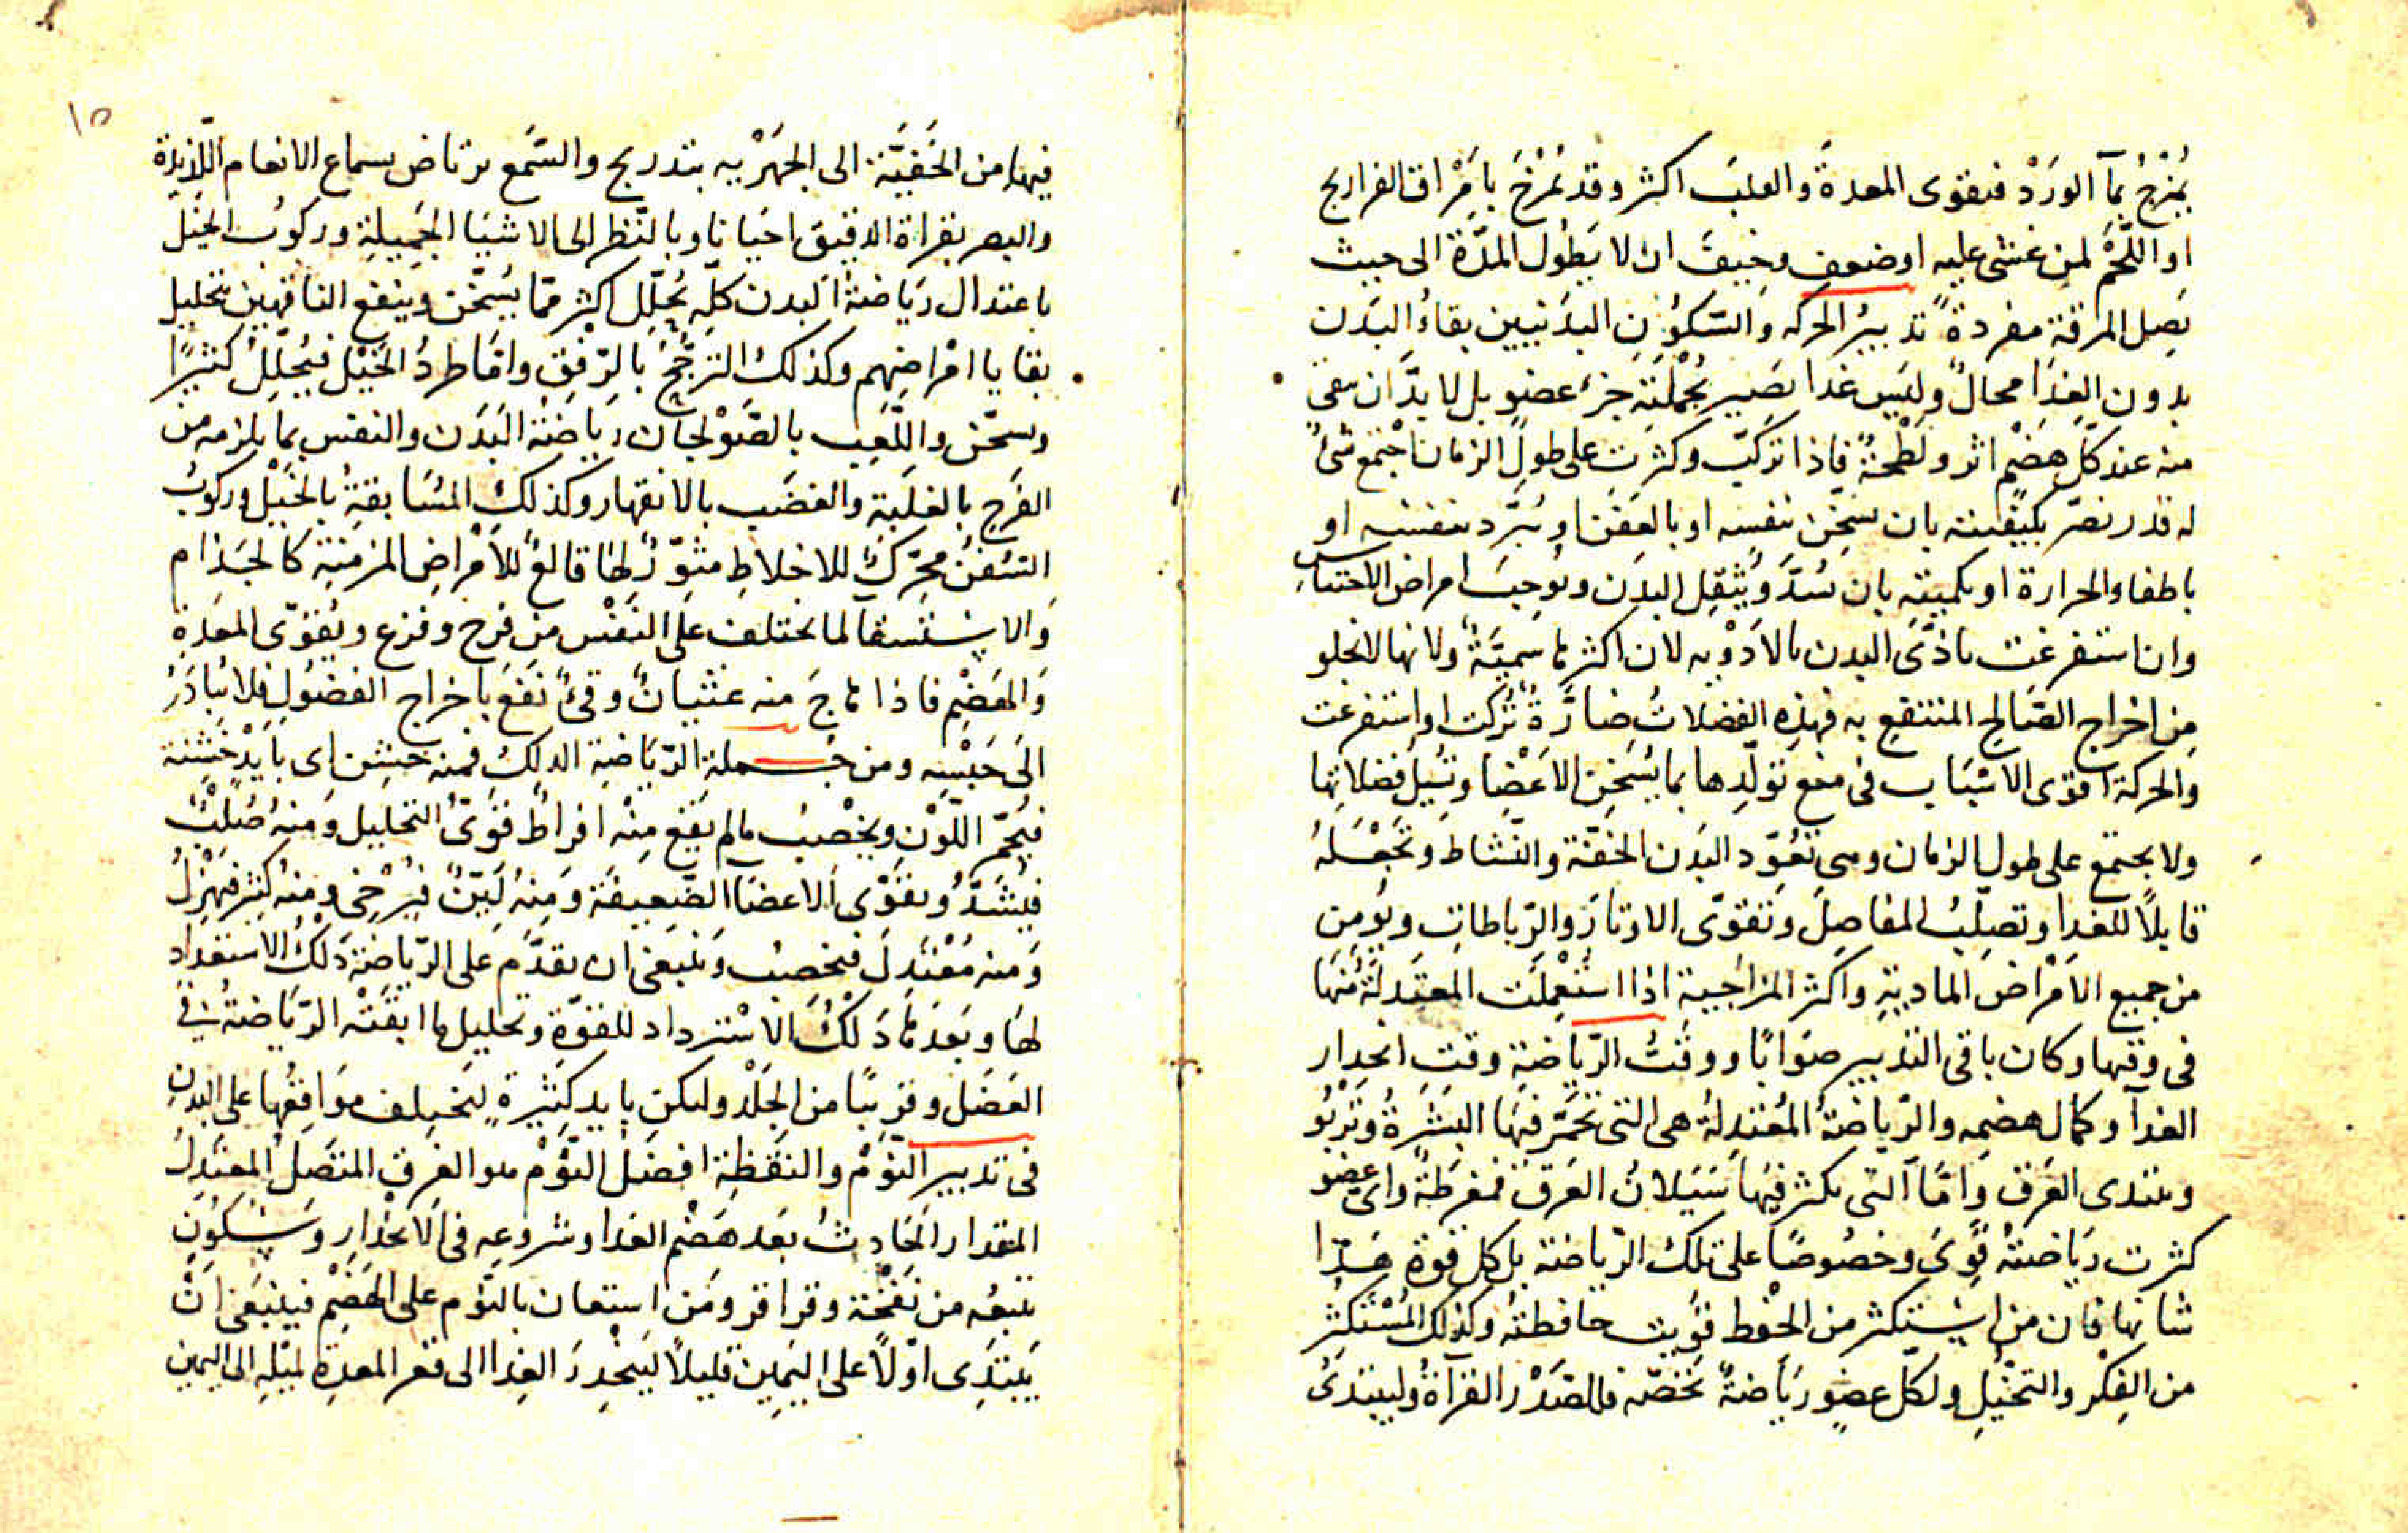 يُمْزَجُ بمآ الورَدْ فتقوى المعدةَ والقلبَ اكثر وقد تُمْرَخَ بامْراق الفراريج
او اللّحْمُ لمن غشى عليه او ضعف وخيف ان لا يَطُول المدّة الى حيث
تصِل المرقة مفردةً تدبيرُ الحركه وَالسّكوُن البدَنيين بقاءُ البَدن
بدون الغِذَا محالٌ وليَس غذا يصَير بجُمْلَتِه جزءَ عضوٍ بل لا بدّ ان يبقى
منه عند كلّ هضْم اثر ولَطْخةٌ فاذا تركت وكثرت على طولِ الزمان اجْتمع شئٌ
له قدر يضرّ بكيفيته بان يسخّن بنفسه او بالعَفَن او يُبَرّد بنفسه او
باطفاءِ الحرارة او بكميته بان يَسُدَّ ويُثقِل البدَن ويُوجبَ امراض الاحتباس
وان استفرغت تاذّى البدن بالاَدْوْيه لان اكثرها سُمِيَّةٌ ولانها لا تخلو
مِن اخراج الصّالِح المنتفع به فهذِه الفضلاتُ ضارَّةٌ تُرِكت او استفرغت
والحركة اقوَى الاسْبَاب فى منع تولّدِها بما يُسَخِن الاَعْضَا وتسُيِلُ فضلاتِها
ولا يجتمع على طول الزمان وهى تُعَوِّد البدَن الخفّة والنّشاط وَتجْعَلهُ
قابلاً للغذا وتصلّبُ المفاصِلَ وَتقوّى الاوتارَ والرّباطاتِ ويُومِن
من جميع الاَمْراضِ الماديةِ واكثر المزاجية اذا اسْتُعْمِلَت المعتدلةُ مُنها
فى وقتها وكان باقى التدبير صَوَابًا ووقتُ الرّياضةِ وقت انحدار
الغدآ وكمال هضمِه والرّياضةُ المُعْتدِلةُ هى التى تحْمَرّ فيَها البشَرةُ وتَرْبُو
ويبتدى العَرق وَامّا التى يكثر فيَها سَيَلانُ العَرَق فمُفرِطةٌ واىّ عضو
كثرت ريَاضتهُ قَوِىَ وخصُوصًا على تلك الرّياضة بل كل قوةٍ هَذا
شانها فان من استكثر من الحفظ قويت حافظته وكذلك المُسْتكثر
من الفِكْر والتخيّل ولكلّ عضوٍ ريَاضةٌ تخصّه فللصّدْر القرآةُ وليبتدئُ
١٥
فيها من الخَفيّة الى الجهْرْيه بتدريج والسّمع يرتاض بسماع الانغام اللّذيذة
والبصر بقراة الدقيق احيَانا وبالنّظر الى الاشيَا الجَمِيلةِ وركوُب الخيْل
باعتدال ريَاضة البدن كلّهِ يُحَلّل اكثر ممّا يُسَخّن وينفع الناقهِين بتحليل
بقايا امْراضهم وكذلك الترَجُّحُ بالرّفق وامّا طردُ الخيْل فيُحَلِّلُ كثيرًا
ويسخّن واللّعِب بالصّوْلجان ريَاضة البَدَن والنفس بما يلزمه من
الفرَح بالغلَبة والغضَب بالانقهار وكذلك المسَابقةِ بالخيْل وركوُب
السّفنُ محرّك للاخلاط مثوّر لها قالعٌ للاَمْراض المزمنةِ كالجذام
وَالاستسقا لما يختلف على النفْس من فرح وفزع ويُقوّى المعدة
وَالهضْم فاذا هاجَ منه غثيانٌ وقئٌ نفع باخراج الفضُولِ فلا يُبادَرُ
الى حَبْسِه ومن جملة الرّيَاضةِ الدلك فمنه خشِن اى باَيْدٍ خشنة
فيُحمّر اللّوْن ويخْصبُ ما لم يقع مِنْه افراط قَوِىّ التحليل ومَنهُ صُلْبٌ
فيُشدّ ويقوّى الاعضا الضّعيفة وَمِنهُ لَيّنٌ فيُرْخى ومنهُ كثير فيهْزِلُ
وَمنه مُعْتدِل فيخصبُ وَينبغى ان يقدّم على الرّياضة دَلكُ الاستعداد
لهَا وبَعدها دَلْكُ الاسْترداد للقوّة وتحليل ما ابقتْه الرّيَاضةُ من
الفضَل وقريبًا من الجَلْد وليكن بايدٍ كثيرة ليَختلِف مَواقعُها على البدن
فى تدبير النّوْم واليَقظةِ افضلُ النّوْم هو الغرِق المتصلُ المعتدِلُ
المقدار الحَادثُ بعَد هَضْم الغدا وشروعِه فى الاَنحْدار وَسُكُون
يتبعُه من نَفْخة وقراقر ومَن استعان بالنّوم على الهضْم فينبغَى انْ
يَبتدِى اوّلاً على اليَمِين قليلاً ليَنْحدِرَ الغِدا الى قعر المعدة لميْلِه الى اليَمين